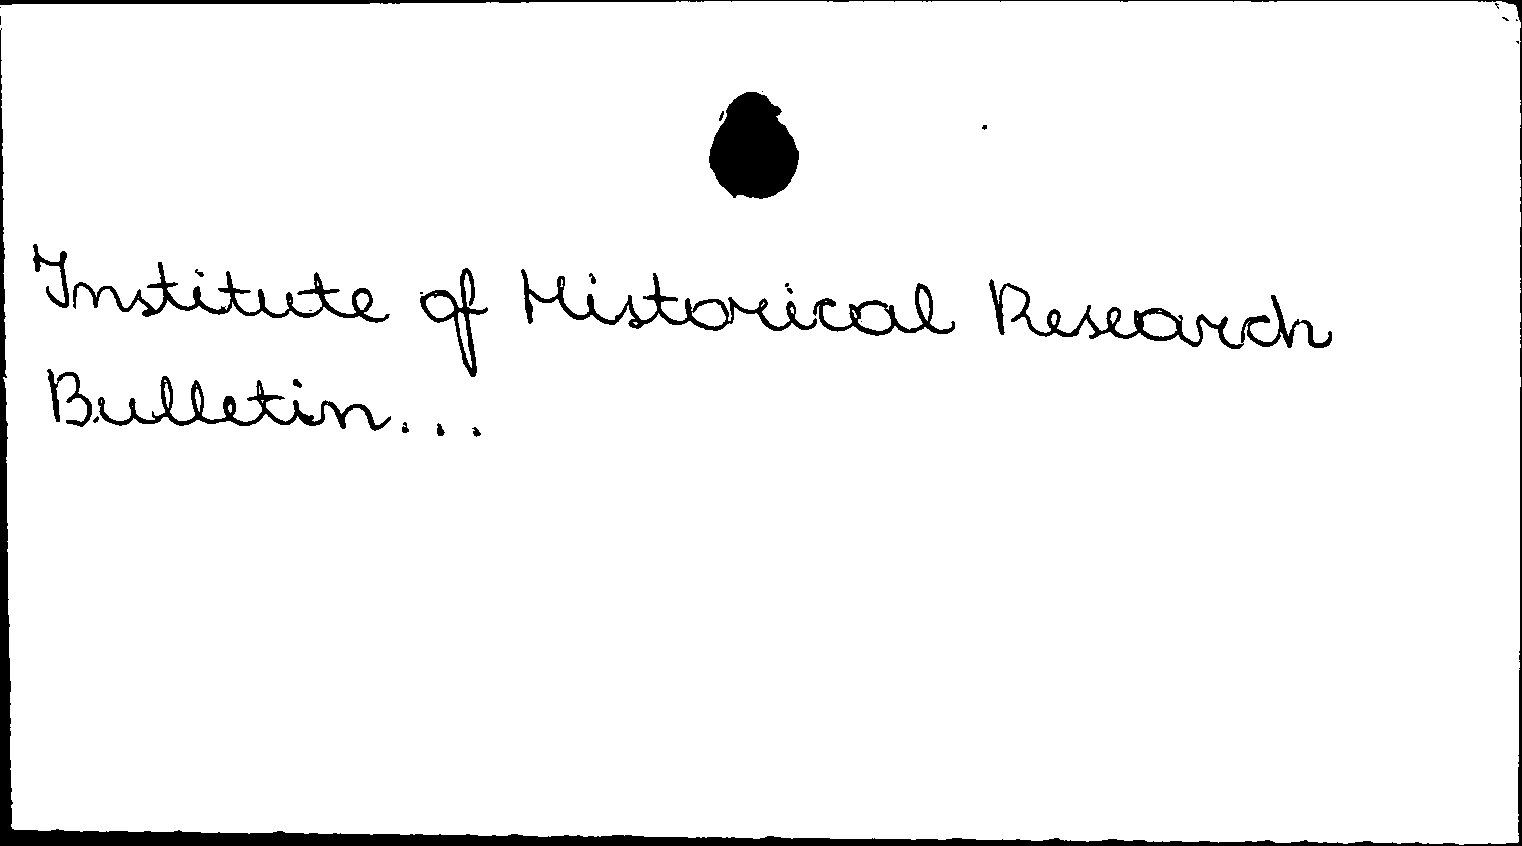 Institute of Historical Research
Bulletin...